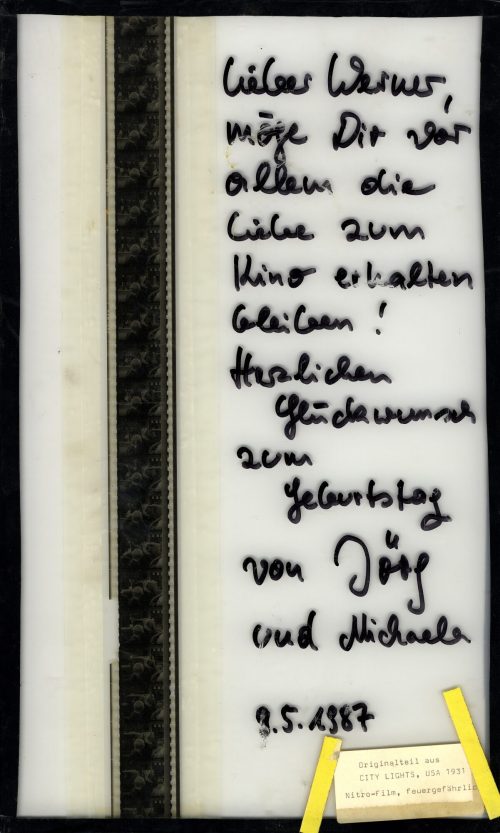 Lieber Werner,
möge Dir vor
allem die
Liebe zum
Kino erhalten
bleiben!
Herzlichen
Glückwunsch
zum
Geburtstag
von Jörg
und Michaela
9.5.1987
Originalteil aus
CITY LIGHTS, USA 1931
Nitro-Film, feuergefährlic